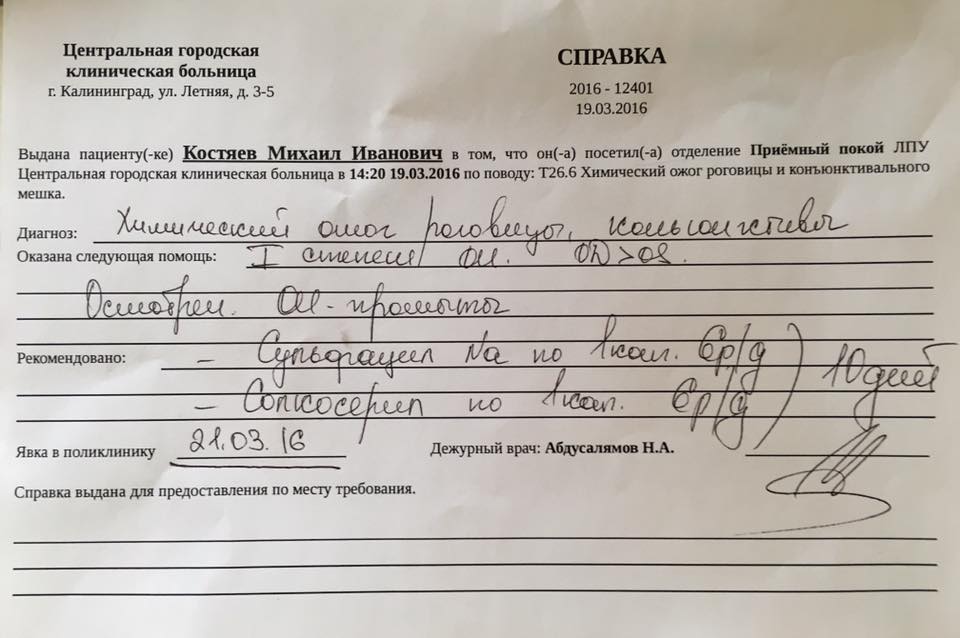 Центральная городская
клиническая больница
г. Калининград, ул. Летняя, д. 3-5
СПРАВКА
2016 - 12401
19.03.2016
Выдана пациенту(-ке) Костяев Михаил Иванович в том, что он(-а) посетил(-а) отделение Приёмный покой ЛПУ
Центральная городская клиническая больница в 14:20 19.03.2016 по поводу: Т26.6 Химический ожог роговицы и конъюнктивального
мешка.
Диагноз: Химический ожог роговицы, конъюнктивы
Оказана следующая помощь: I степени OU. OD>OS.
Осмотрен. OU-промыты
Рекомендовано: – Сульфацил Na по 1кап. 6р/д
– Солкосерил по 1кап. 6р/д
10 дней
Явка в поликлинику 21.03.16 Дежурный врач: Абдусалямов Н.А.
Справка выдана для предоставления по месту требования.